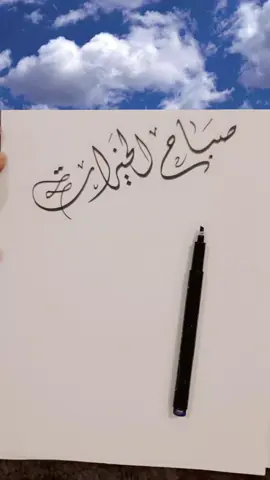 صباح الخيرات